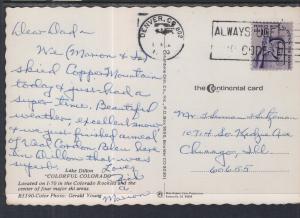 Dear Dad,
We (Marion & I)
skied Copper Mountain
today & just had a
super time. Beautiful
weather, excellent snow
& we just finished a meal
of real Cordon Bleu here
in Dillon that was
superb. Love,
Marion
Lake Dillon
"COLORFUL COLORADO"
Located on I-70 in the Colorado Rockies and the
center of four major ski areas.
B1190-Color Photo: Gerald Young
DENVER, CO 802
ALWAYS USE
ZIP CODE
the Continental card
Mr.
So. Kedzie Ave
Chicago, Ill
60655